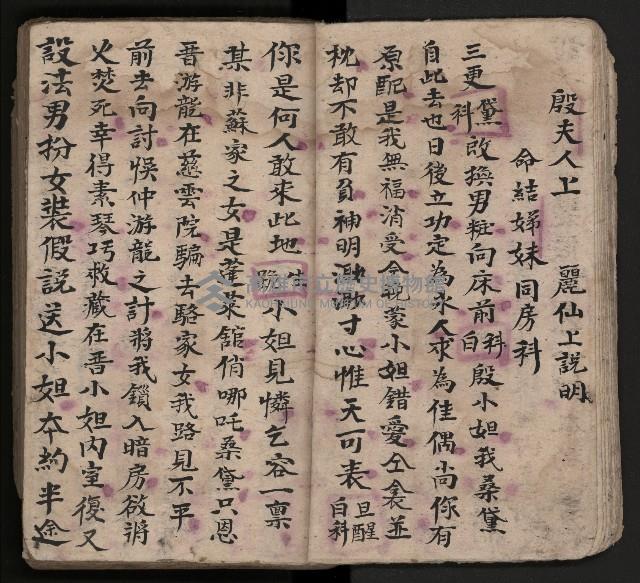 殷夫人上　　麗仙上説明
命結娣妹同房科
三更科黛改換男粧向床前科白殷小姐我桑黛
自此去也日後立功定為永人求為佳偶尚你有
原配是我無福消受今既蒙小姐錯愛仝衾並
枕却不敢有負神明瀝瀝寸心惟天可表旦醒白科
你是何人敢來此地生跪小姐見憐乞容一禀
某非蘇家之女是蓬萊舘俏哪吒桑黛只恩
晋游龍在慈雲院騙去駱家女我路見不平
前去向討悞仲游龍之計將我鎖入暗房欲將
火焚死幸得素琴巧救藏在晋小姐内室復又
設法男扮女裝假説送小姐本約半途
高雄市立歷史博物館
KAOHSIUNG MUSEUM OF HISTORY